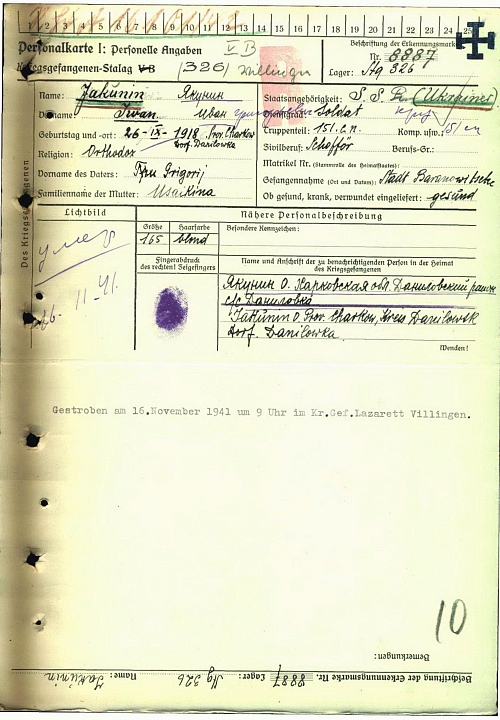 1 2 3 4 5 6 7 8 9 10 11 12 13 14 15 16 17 18 19 20 21 22 23 24 25
Personalkarte I: Personelle Angaben
V B
Beschriftung der Erkennungsmarke
Kriegsgefangenen-Stalag V B (326) Villingen
Nr. 8887
Lager: Stg 326
Des Kriegsgefangenen
Name: Jakunin Якунин
Staatsangehörigkeit: S. S. R. (Ukrainer)
Vorname: Iwan Иван
Dienstgrad: Soldat
Geburtstag und -ort: 26-IX-1918 Prov. Charkow
Dorf. Danilowka
Truppenteil: 151. Komp. usw.:
Religion: Orthodox
Zivilberuf: Schofför Berufs-Gr.:
Matrikel Nr. (Stammrolle des Heimatstaates):
Vorname des Vaters: Grigorij
Gefangennahme (Ort und Datum): Stadt
Familienname der Mutter: Usackina
Ob gesund, krank, verwundet eingeliefert: gesund
Lichtbild
Nähere Personalbeschreibung
Größe Haarfarbe Besondere Kennzeichen:
165 blond
умер
16-11-41.
Fingerabdruck
des rechten! Zeigefingers
Name und Anschrift der zu benachrichtigenden Person in der Heimat
des Kriegsgefangenen
Якунин О. Харковская обл. Даниловский район
с/с Даниловка
Jakunin O. Prov. Charkow, Kreis Danilowsk
dorf. Danilowka
Wenden!
Gestroben am 16.November 1941 um 9 Uhr im Kr.Gef.Lazarett Villingen.
10
Bemerkungen:
Beschriftung der Erkennungsmarke Nr. 8887 Lager: Stg 326 Name: Jakunin